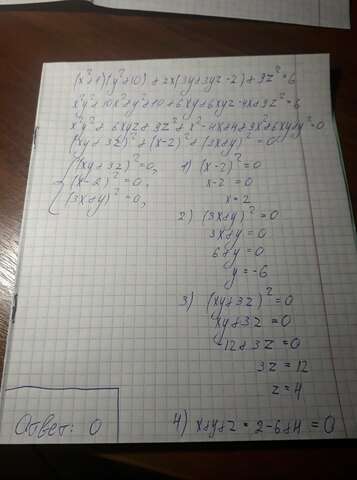 (x²+1)(y²+10) + 2x(3y+3yz-2) + 9z² = 6
x²y²+10x²+y²+10+6xy+6xyz-4x+9z²=6
x²y²+6xyz+9z²+x²-4x+4+9x²+6xy+y²=0
(xy+3z)²+(x-2)²+(3x+y)²=0
(xy+3z)²=0,
(x-2)²=0,
(3x+y)²=0,
1) (x-2)²=0
x-2=0
x=2
2) (3x+y)²=0
3x+y=0
6+y=0
y=-6
3) (xy+3z)²=0
xy+3z=0
-12+3z=0
3z=12
z=4
4) x+y+z=2-6+4=0
Ответ: 0